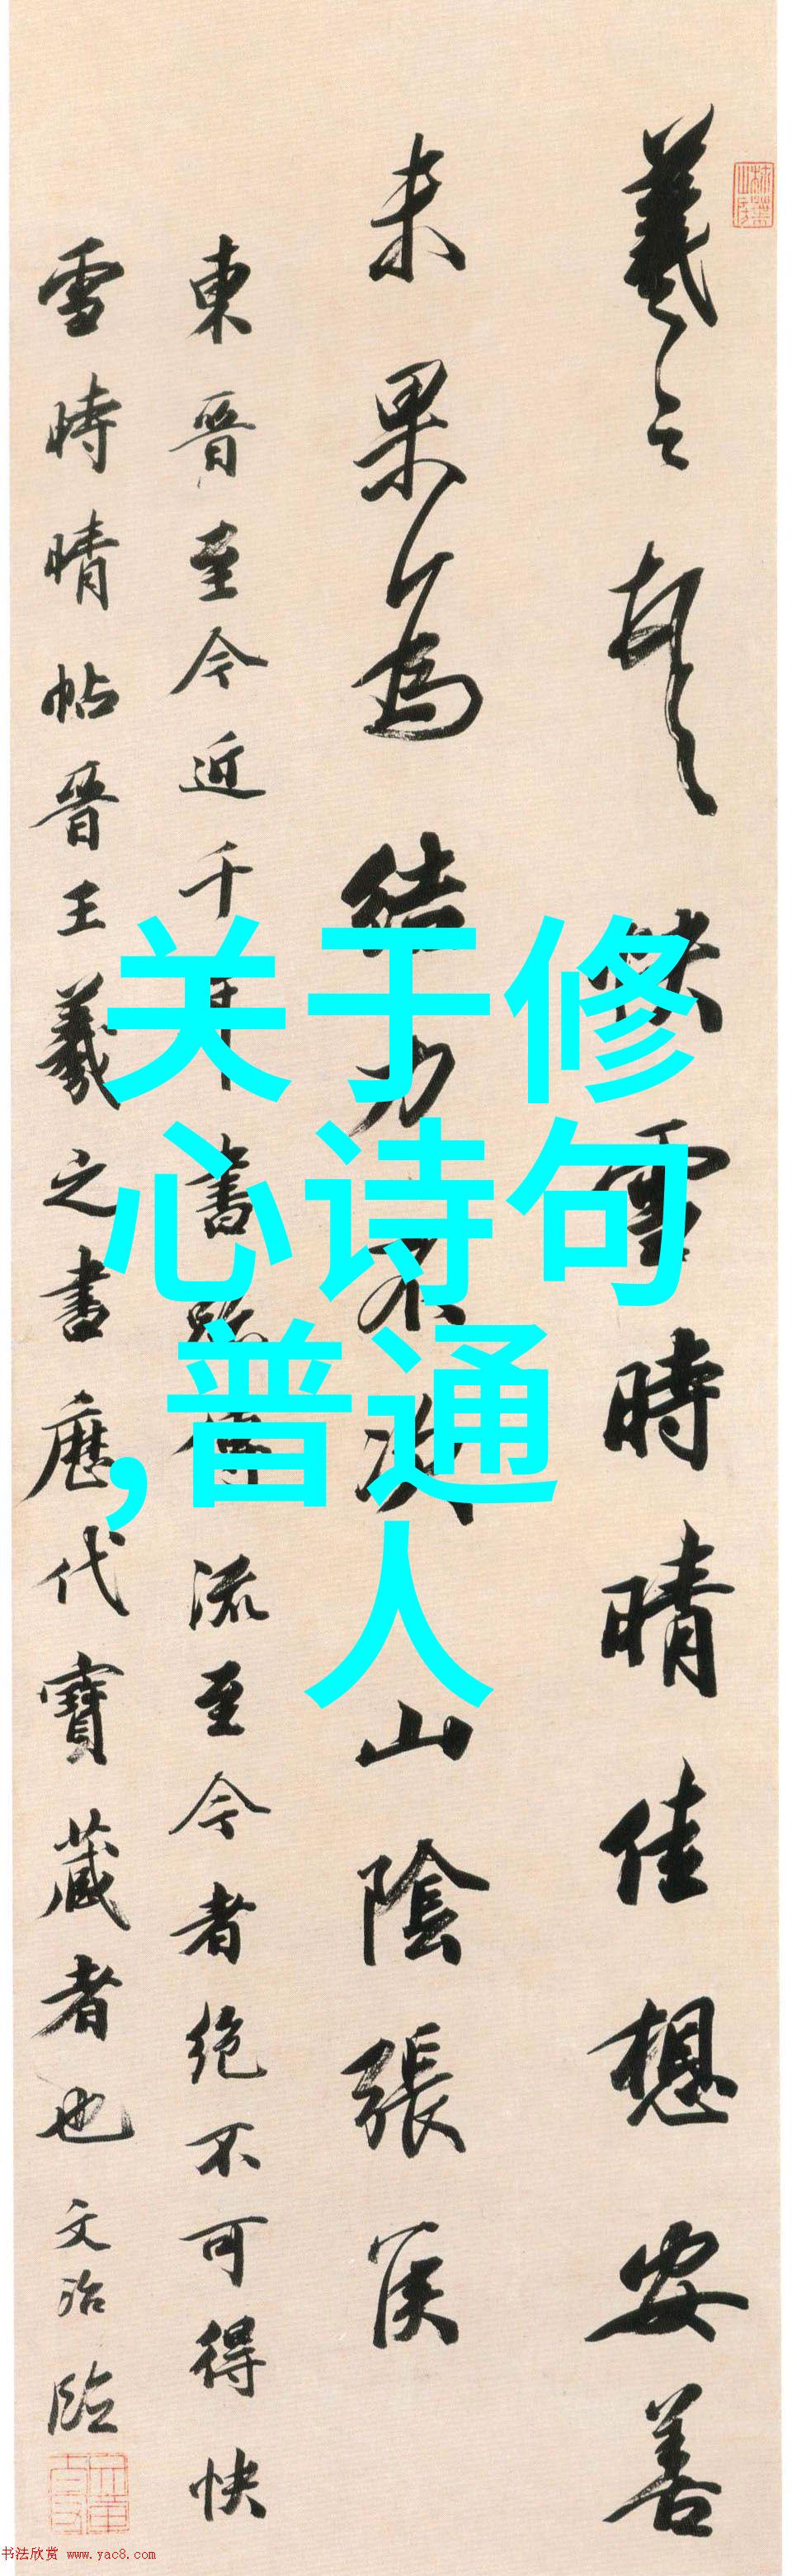 羲之頓首快雪時晴佳想安善
未果為結力不次山陰張侯
東晉至今近千年書跡傳流至今者絕不可得快
雪時晴帖晉王羲之書歷代寶藏者也文治臨
关于修
心诗句
,普通
人
书法欣赏 www.yac8.com